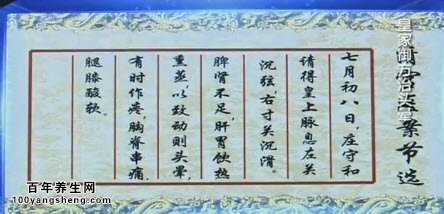 皇家御方治头晕
清宫医案节选
七月初八日，庄守和
请得皇上脉息左关
沉弦，右寸关沉滑。
脾肾不足，肝胃饮热
熏蒸以致动则头晕，
有时作疼，胸脊串痛，
腿膝酸软。
百年养生网
100yangsheng.com